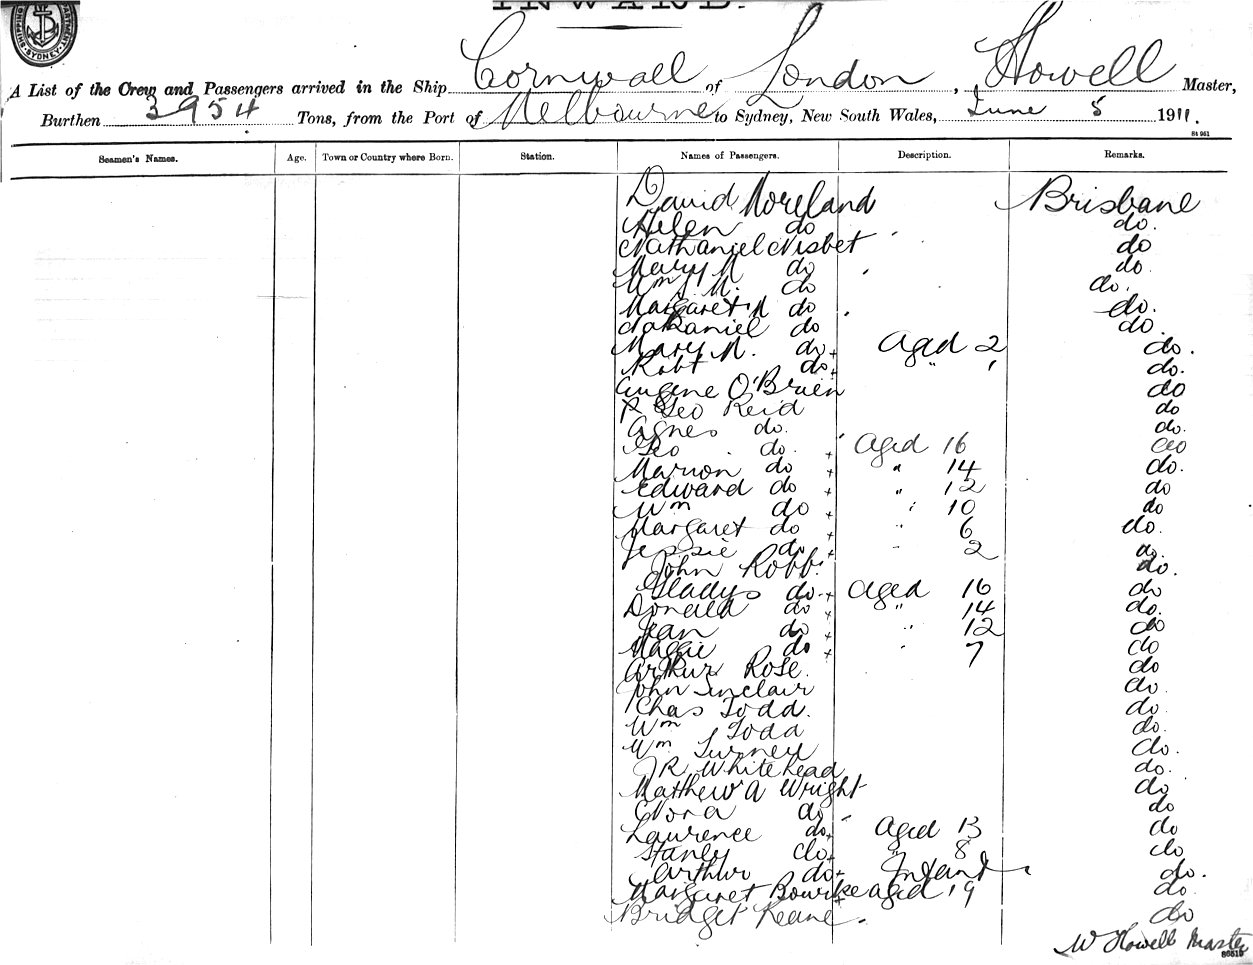 INWARD.
SHIPPING DEPARTMENT SYDNEY
A List of the Crew and Passengers arrived in the Ship Cornwall of London, Howell Master,
Burthen 3954 Tons, from the Port of Melbourne to Sydney, New South Wales, June 8 1911.
84 961
Seamen's Names. Age. Town or Country where Born. Station. Names of Passengers. Description. Remarks.
David Moreland Brisbane
Helen do do.
Nathaniel Nisbet do
Mary N do do.
Wm J. M. do do.
Margaret N do do.
Nathaniel do do.
Mary N. do Aged 2 do.
Robt do. " 1 do.
Eugene O'Brien do
Geo Reid do
Agnes do. do.
Geo do. Aged 16 do
Marion do " 14 do.
Edward do " 12 do
Wm do " 10 do
Margaret do " 6 do.
Jessie do " 2 do.
John Robb. do.
Gladys do. Aged 16 do
Donald do " 14 do.
Jean do " 12 do
Maggie do " 7 do
Arthur Rose. do
John Sinclair do.
Chas Todd. do.
Wm Todd do.
Wm Turner do.
JR Whitehead do.
Matthew A Wright do
Nora do do
Laurence do. Aged 13 do
Stanley do. " 8 do
Arthur do. Infant do.
Margaret Bourke aged 19 do.
Bridget Keane. do
W Howell Master
86515